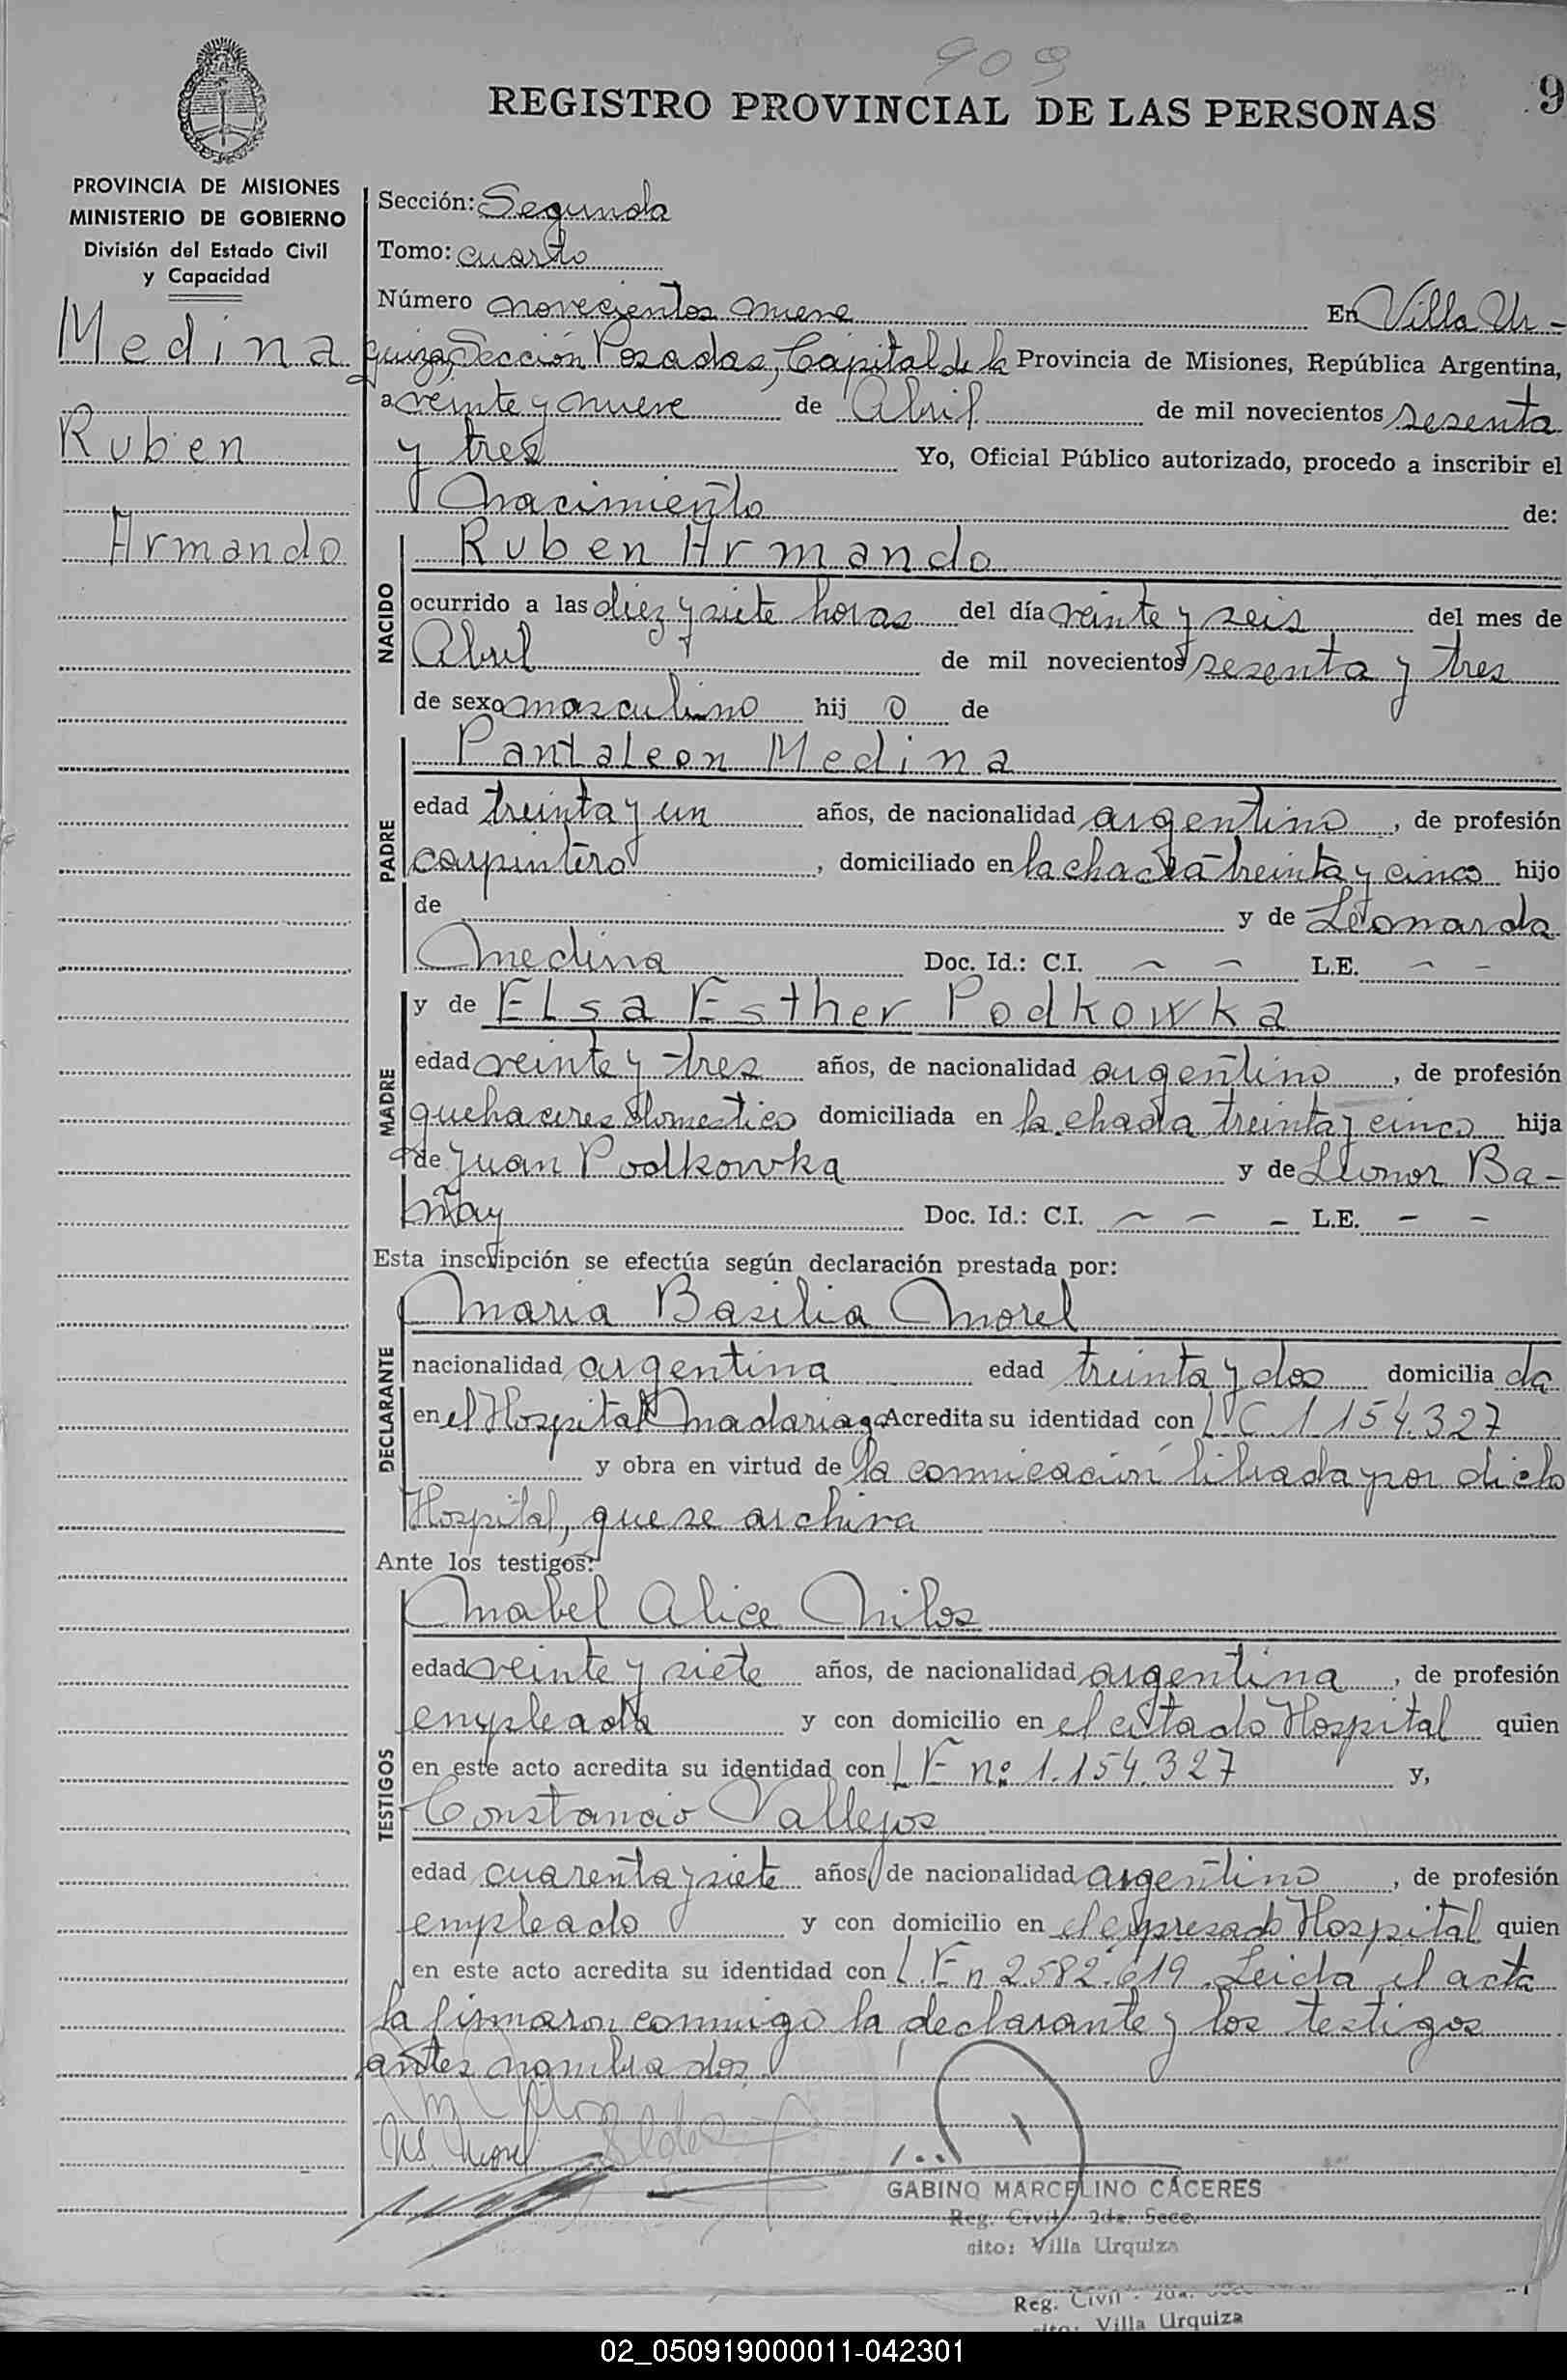 909
REGISTRO PROVINCIAL DE LAS PERSONAS
9
PROVINCIA DE MISIONES
MINISTERIO DE GOBIERNO
División del Estado Civil
y Capacidad
Medina
Ruben
Armando
Sección: Segunda
Tomo: cuarto
Número novecientos nueve En Villa Ur-
quiza, Sección Posadas, Capital de la Provincia de Misiones, República Argentina,
a veinte y nueve de Abril de mil novecientos sesenta
y tres Yo, Oficial Público autorizado, procedo a inscribir el
Nacimiento de:
NACIDO
Ruben Armando
ocurrido a las diez y siete horas del día veinte y seis del mes de
Abril de mil novecientos sesenta y tres
de sexo masculino hij o de
PADRE
Pantaleon Medina
edad treinta y un años, de nacionalidad argentino, de profesión
carpintero, domiciliado en la chacra treinta y cinco hijo
de y de Leonarda
Medina Doc. Id.: C.I. - - L.E. - -
MADRE
y de Elsa Esther Podkowka
edad veinte y tres años, de nacionalidad argentino, de profesión
quehaceres domestico domiciliada en la chacra treinta y cinco hija
de Juan Podkowka y de Leonor Ba-
ñay Doc. Id.: C.I. - - - L.E. - -
Esta inscripción se efectúa según declaración prestada por:
DECLARANTE
Maria Basilia Morel
nacionalidad argentina edad treinta y dos domicilia da
en el Hospital Madariaga Acredita su identidad con L C 1.154.327
y obra en virtud de la comnicación librada por dicho
Hospital, que se archiva
Ante los testigos:
TESTIGOS
Mabel Alice Milos
edad veinte y siete años, de nacionalidad argentina, de profesión
empleada y con domicilio en el citado Hospital quien
en este acto acredita su identidad con L E nº 1.154.327 y,
Constancio Vallejos
edad cuarenta y siete años, de nacionalidad argentino, de profesión
empleado y con domicilio en el expresado Hospital quien
en este acto acredita su identidad con L.E n 2.582.619. Leida el acta
la firmaron conmigo la declarante y los testigos
antes nombrados.
M. Morel
GABINO MARCELINO CÁCERES
Reg. Civil - 2da. Secc.
sito: Villa Urquiza
Reg. Civil - 2da.
sito: Villa Urquiza
02_050919000011-042301